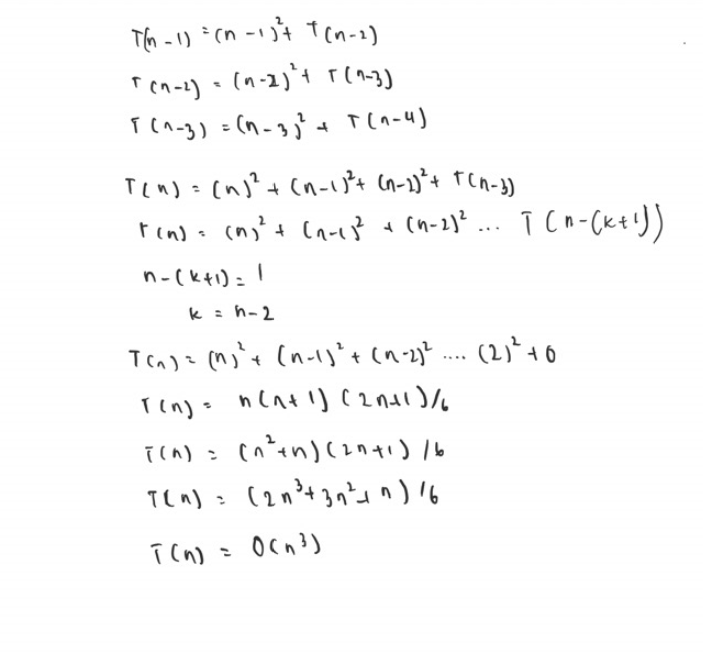 T(n-1) = (n-1)² + T(n-2)
T(n-2) = (n-2)² + T(n-3)
T(n-3) = (n-3)² + T(n-4)
T(n) = (n)² + (n-1)² + (n-2)² + T(n-3)
T(n) = (n)² + (n-1)² + (n-2)² ... T(n-(k+1))
n-(k+1) = 1
k = n-2
T(n) = (n)² + (n-1)² + (n-2)² .... (2)² + 0
T(n) = n(n+1)(2n+1)/6
T(n) = (n²+n)(2n+1)/6
T(n) = (2n³+3n²+n)/6
T(n) = O(n³)